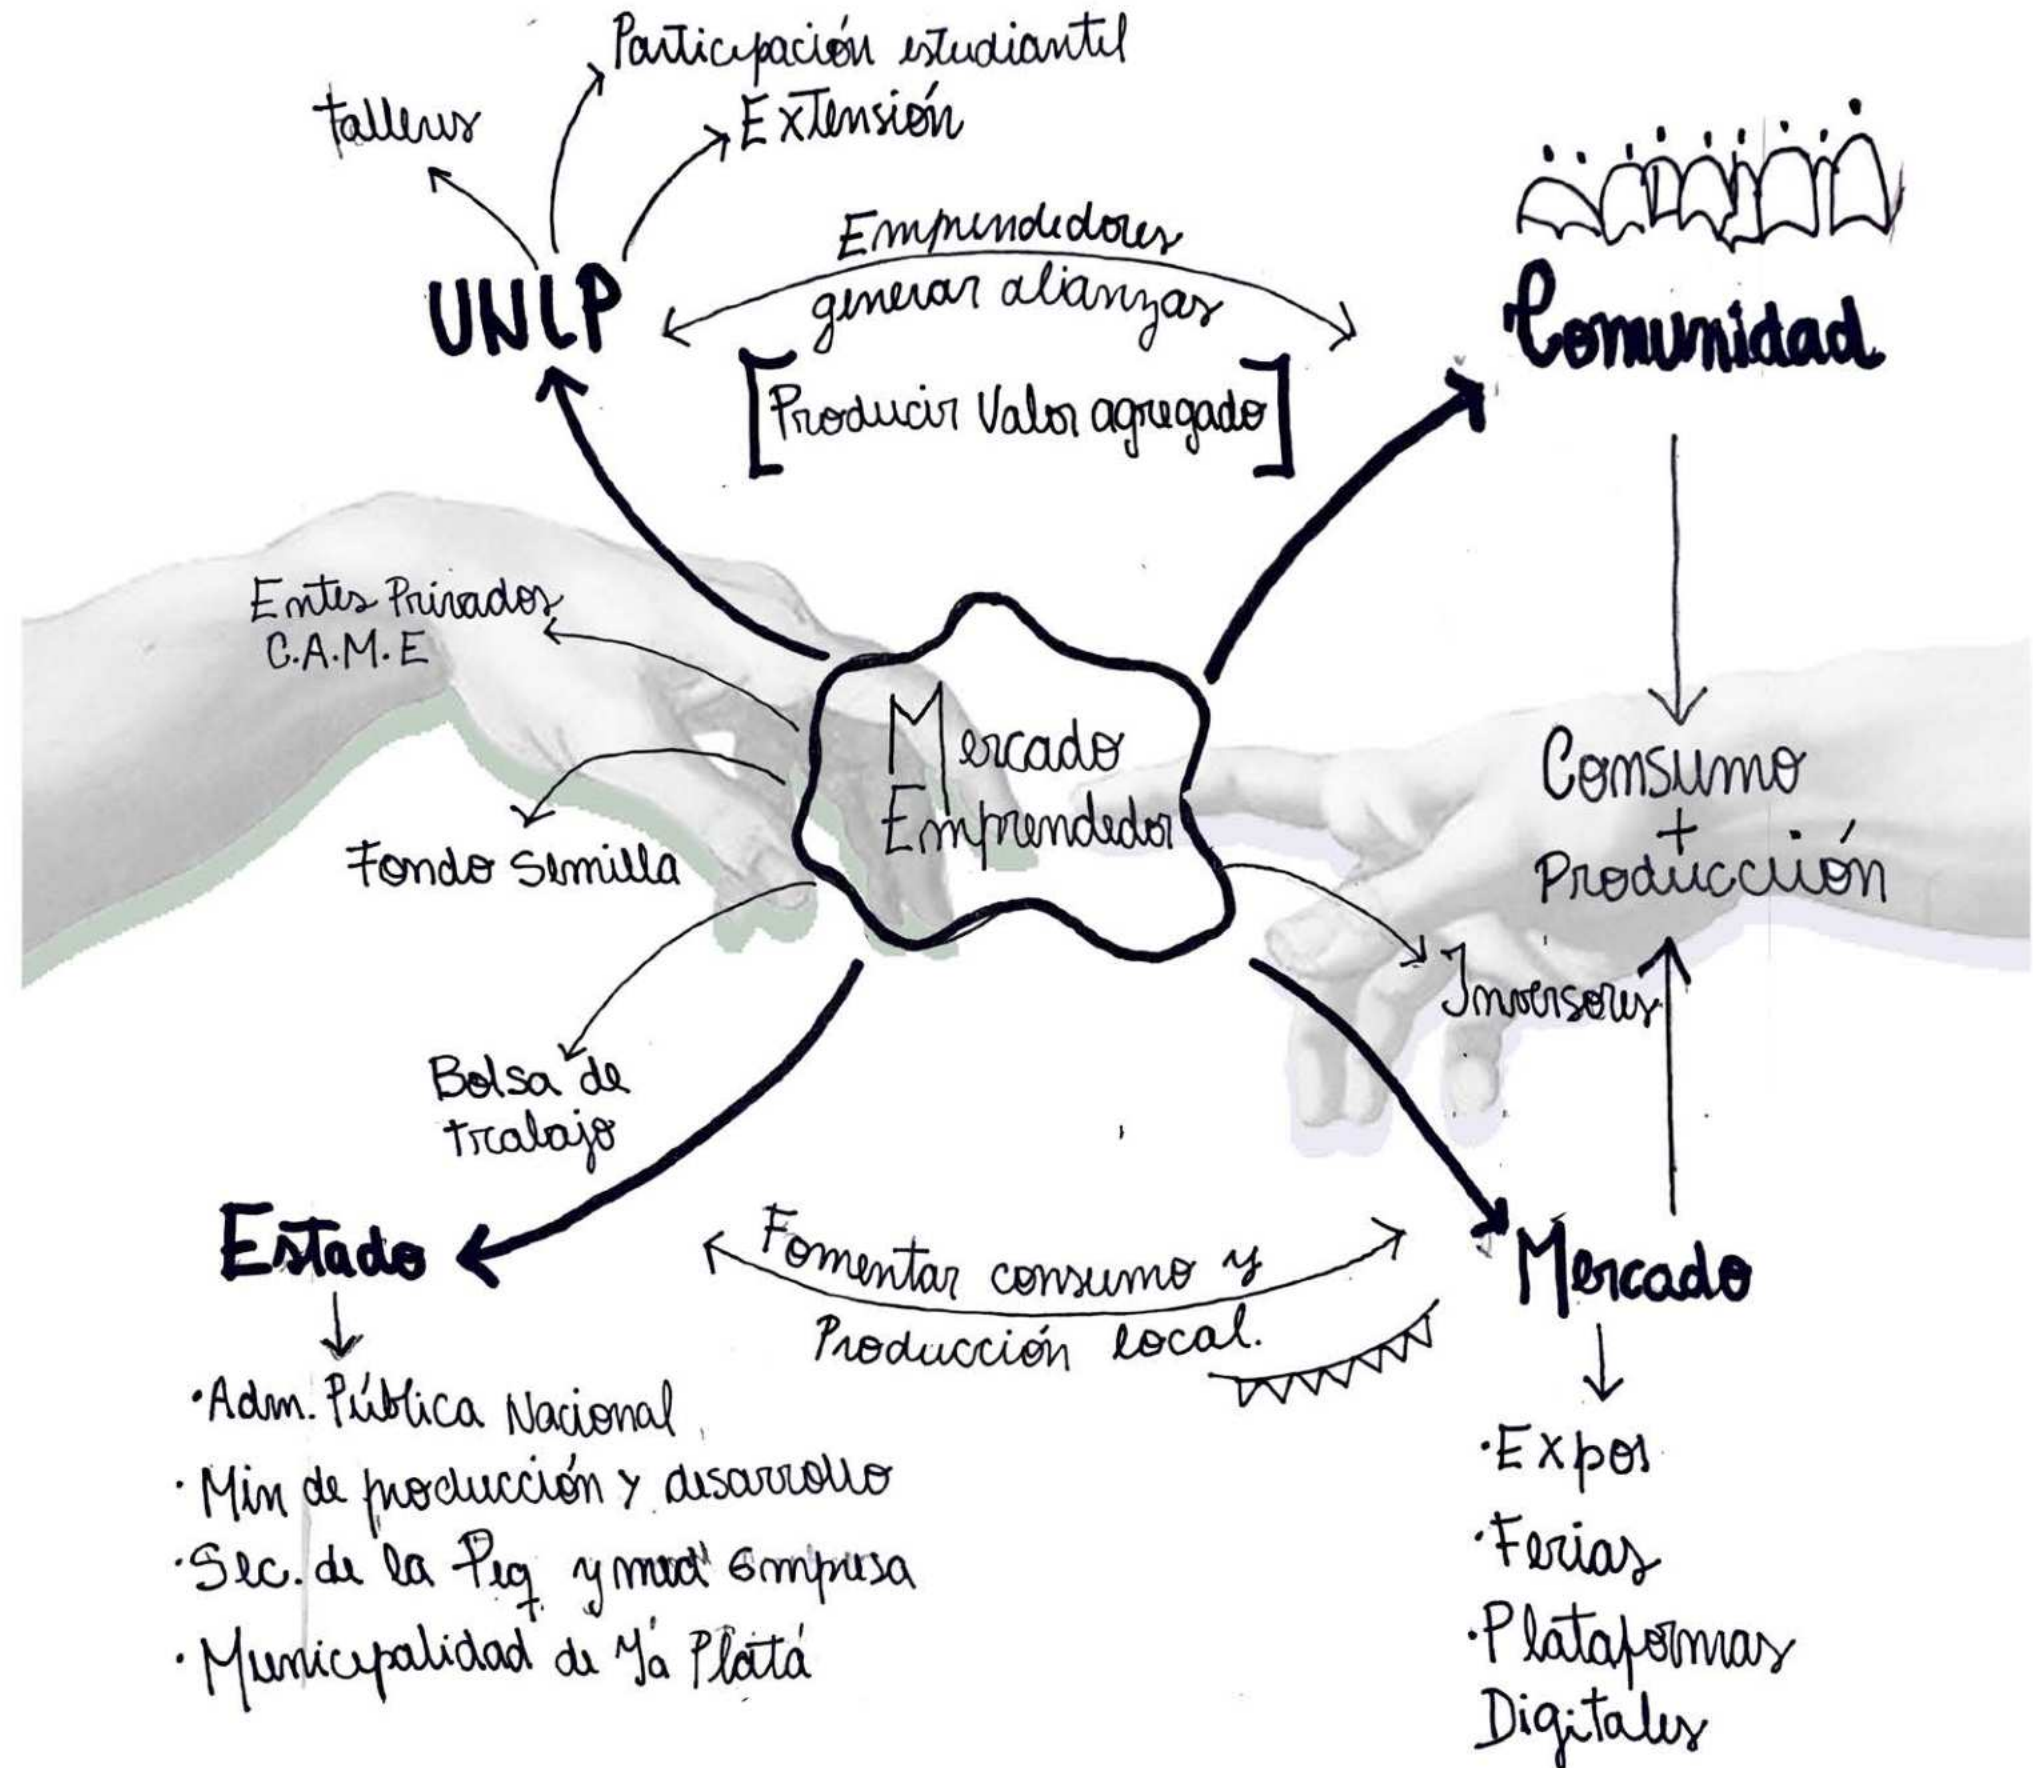 Participación estudiantil
Talleres
Extensión
Emprendedores
generar alianzas
UNLP
Comunidad
[Producir Valor agregado]
Entes Privados
C.A.M.E
Mercado
Emprendedor
Consumo
+
Producción
Fondo Semilla
Inversores
Bolsa de
Trabajo
Estado
Fomentar consumo y
Producción local.
Mercado
·Adm. Pública Nacional
·Min de producción y desarrollo
·Sec. de la Peq. y med Empresa
·Municipalidad de La Plata
·Expos
·Ferias
·Plataformas
Digitales